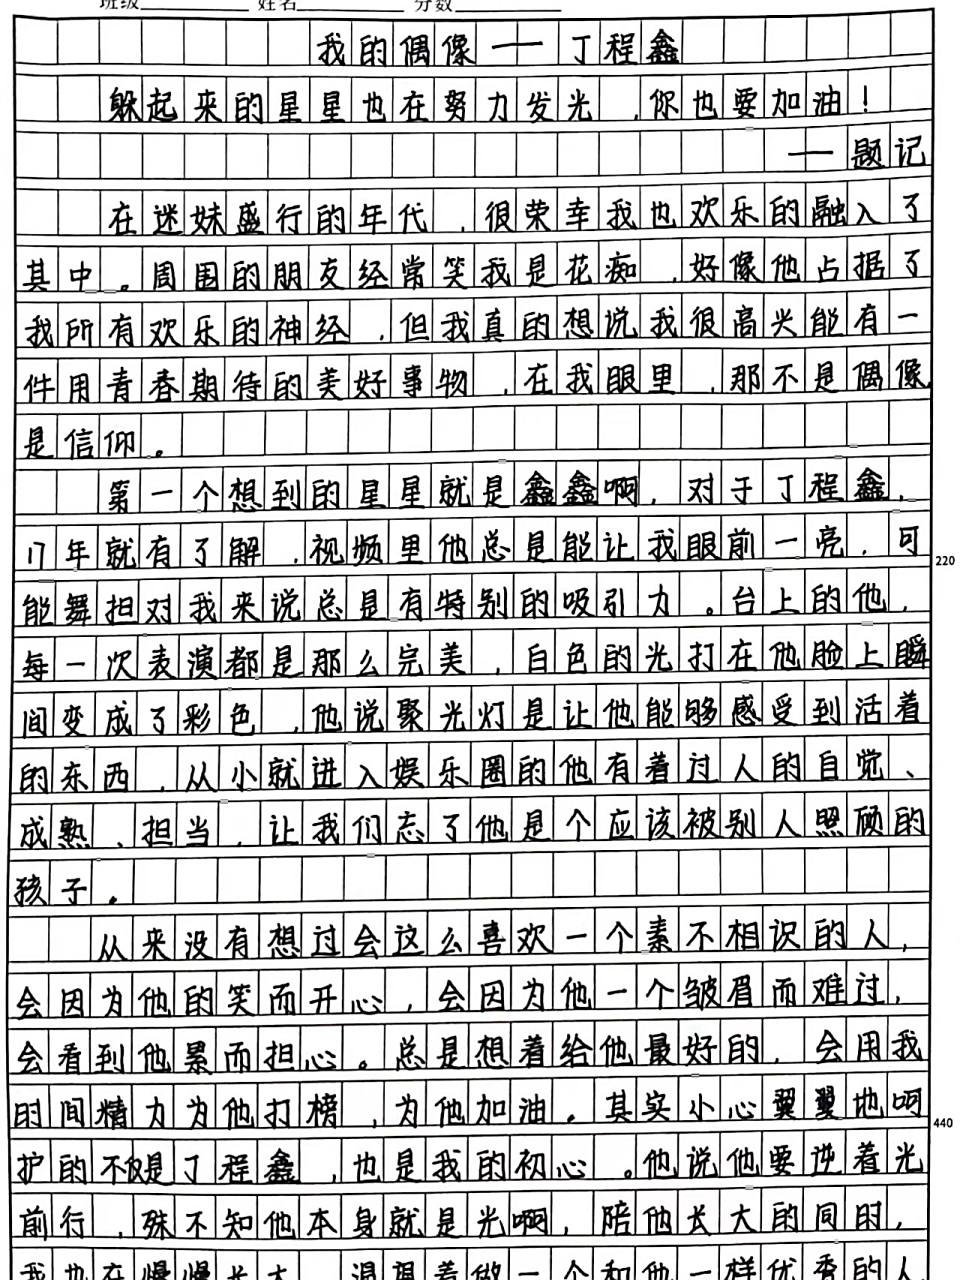 班级 姓名 分数
我的偶像——丁程鑫
躲起来的星星也在努力发光,你也要加油!
——题记
在迷妹盛行的年代,很荣幸我也欢乐的融入了
其中。周围的朋友经常笑我是花痴,好像他占据了
我所有欢乐的神经,但我真的想说我很高兴能有一
件用青春期待的美好事物,在我眼里,那不是偶像
是信仰。
第一个想到的星星就是鑫鑫啊,对于丁程鑫,
17年就有了解,视频里他总是能让我眼前一亮,可
能舞担对我来说总是有特别的吸引力。台上的他,
220
每一次表演都是那么完美,白色的光打在他脸上瞬
间变成了彩色,他说聚光灯是让他能够感受到活着
的东西,从小就进入娱乐圈的他有着过人的自觉、
成熟、担当,让我们忘了他是个应该被别人照顾的
孩子。
从来没有想过会这么喜欢一个素不相识的人,
会因为他的笑而开心,会因为他一个皱眉而难过,
会看到他累而担心。总是想着给他最好的,会用我
时间精力为他打榜,为他加油。其实小心翼翼地呵
440
护的不仅是丁程鑫,也是我的初心。他说他要逆着光
前行,殊不知他本身就是光啊,陪他长大的同时,
我也在慢慢长大,渴望着做一个和他一样优秀的人